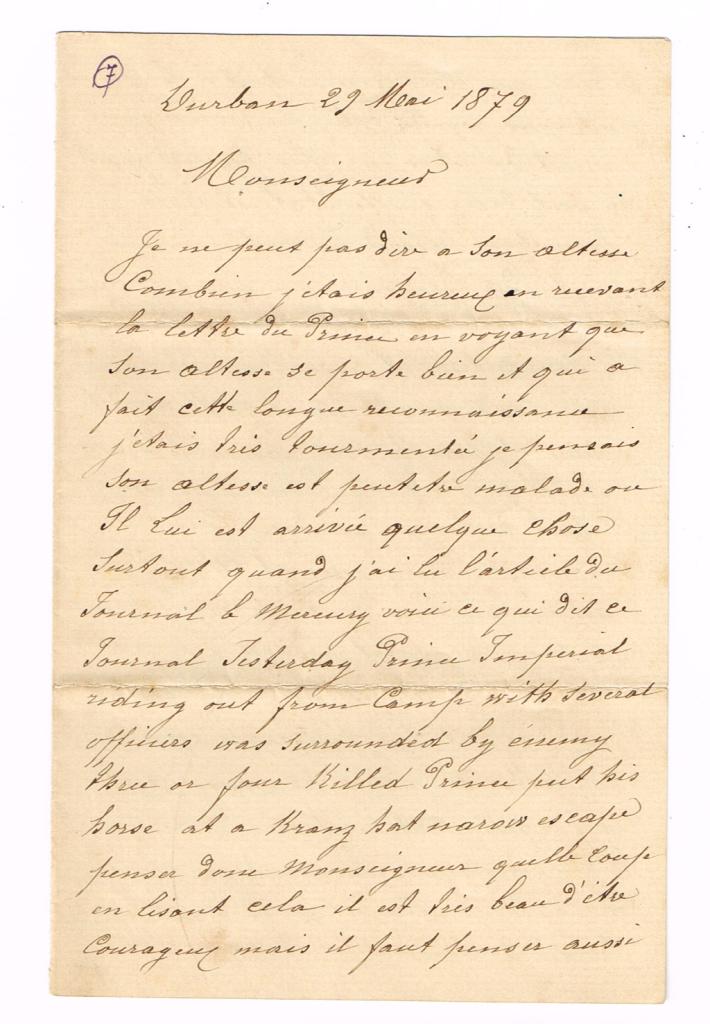 7
Durban 29 Mai 1879
Monseigneur
Je ne peut pas dire a Son altesse
Combien j'etais heureux en recevant
la lettre du Prince en voyant que
Son altesse se porte bien et qui a
fait cette longue reconnaissance
j'etais tres tourmentée je pensais
son altesse est peutetre malade ou
Il Lui est arrivée quelque Chose
Surtout quand j'ai lu l'article du
Journal le Mercury voici ce qui dit ce
Journal Jesterday Prince Imperial
riding out from Camp with several
officiers was surrounded by énemy
three or four Killed Prince put his
horse at a Kranz hat narow escape
penser donc Monseigneur quelle Coup
en lisant cela il est tres beau d'être
Courageux mais il faut penser aussi